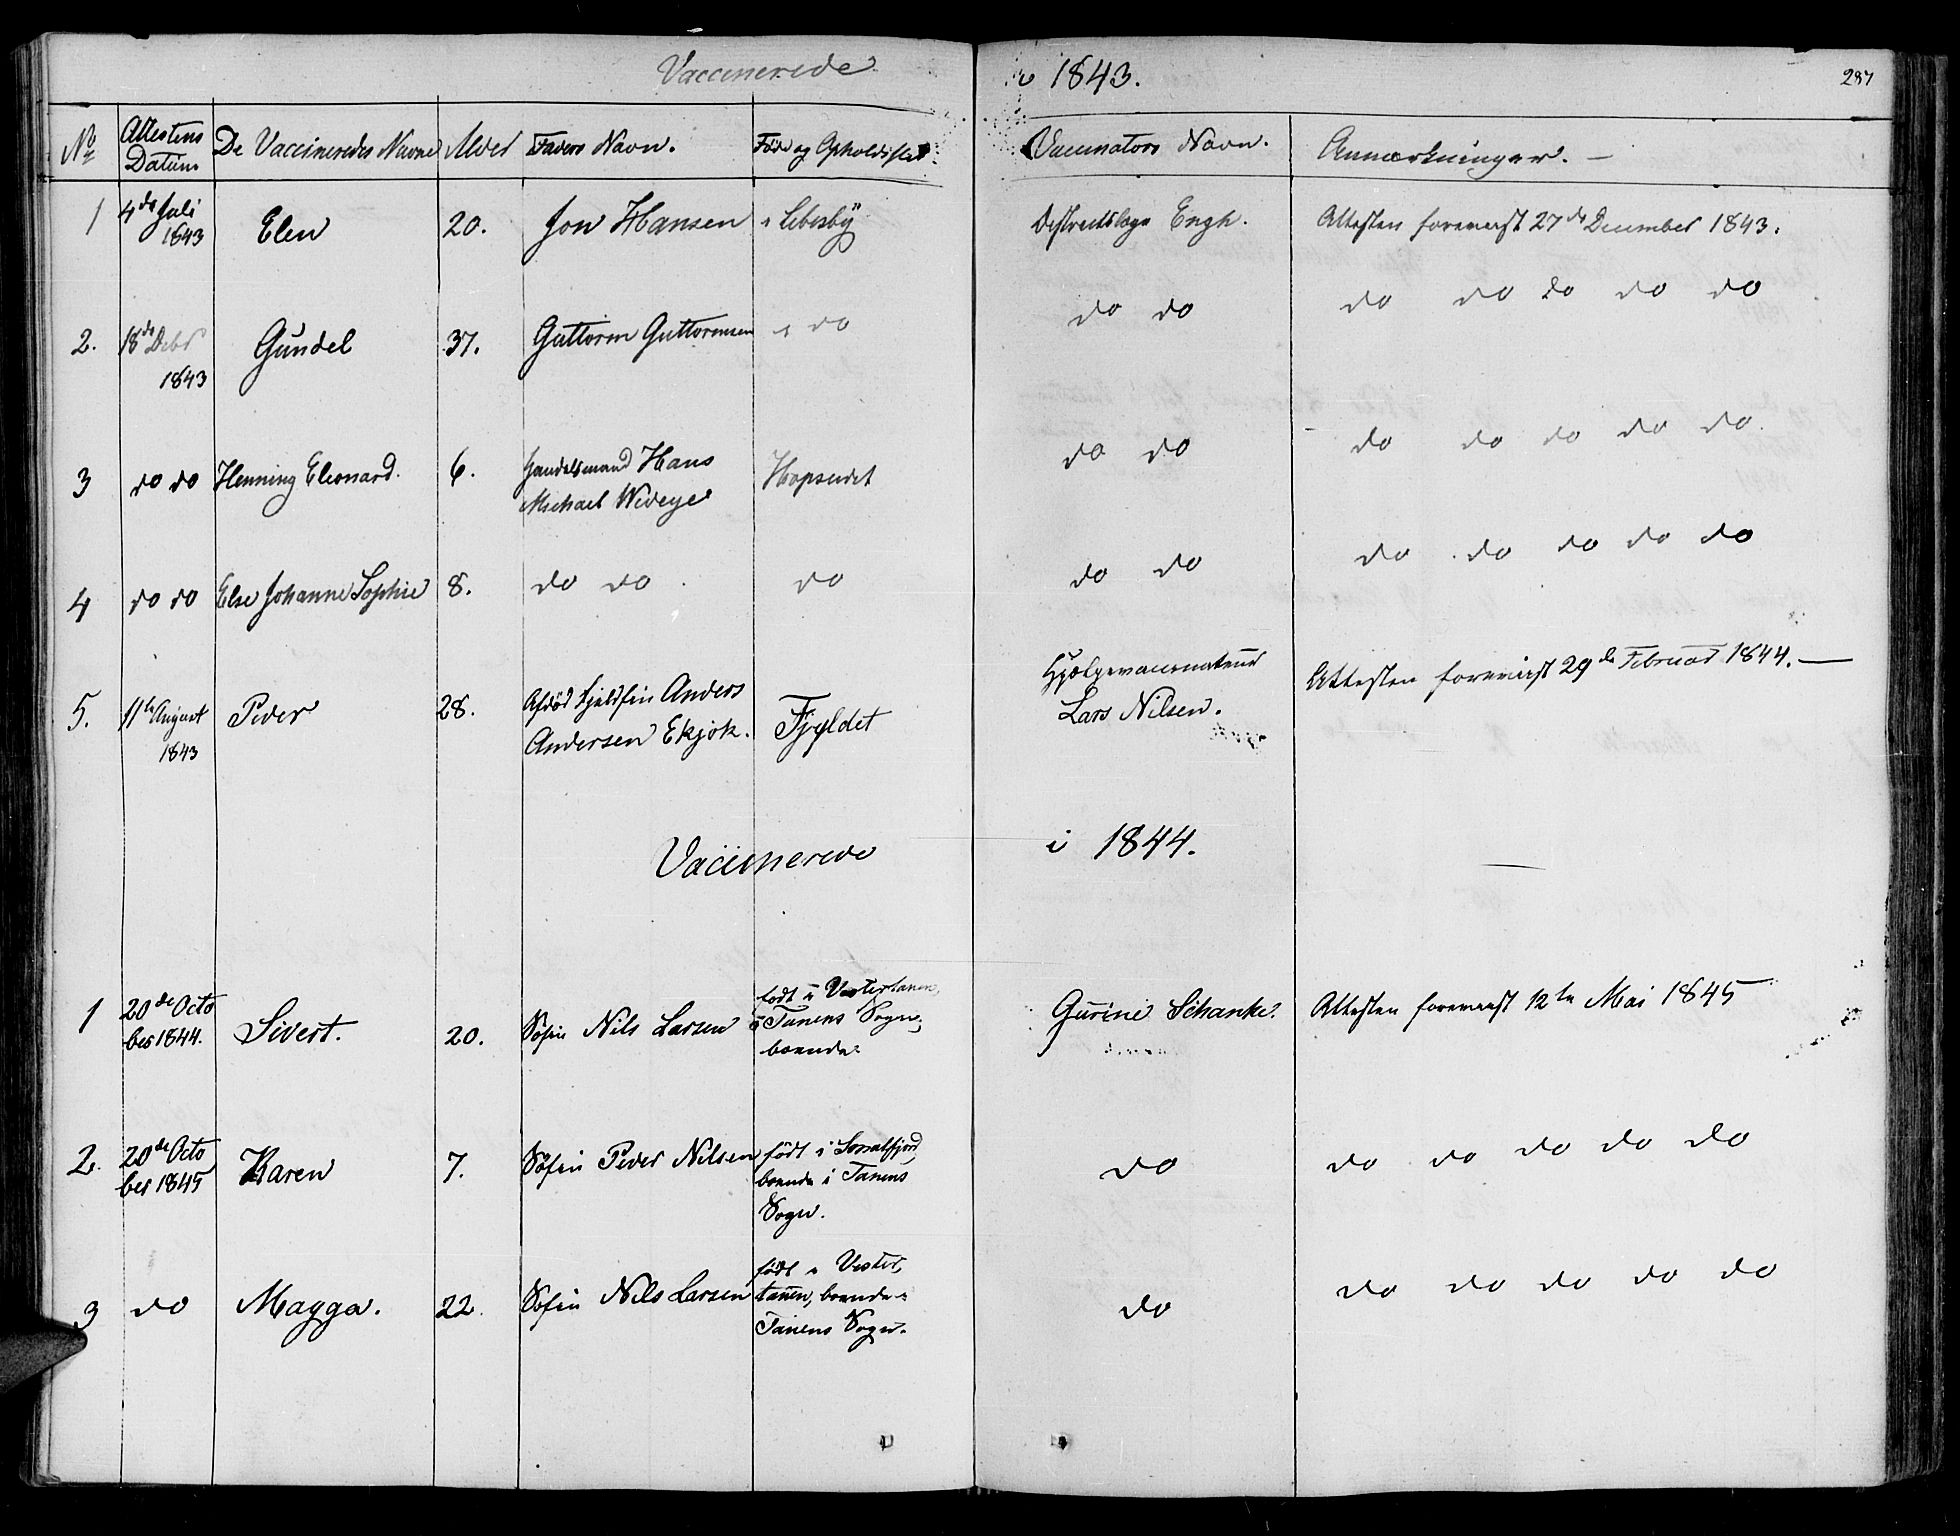 Vaccinerede i 1843. 287
No Attestens Datum De Vaccineredes Navne Alder Faders Navn. Føde og Opholdssted. Vaccinators Navn. Anmærkninger. —
1 4de Juli 1843 Elen 20. Jon Hansen i Lebesby Destrectslæge Engh. Attesten foreviist 27de December 1843.
2. 18de Debr 1843 Gundel 37. Guttorm Guttormsen i do do do do do do do do
3 do do Henning Eleonard. 6. Handelsmand Hans Michael Wedege Hopseidet do do do do do do do
4 do do Else Johanne Sophie 8. do do do do do do do do do do
5. 11te August 1843 Peder 28. Afdöd Fjeldfin Anders Andersen Ekjok. Fjyldet Hjelpevaccinateur Lars Nilsen. Attesten foreviist 29de Februar 1844. —
Vaccinerede i 1844.
1 20de October 1844. Sivert. 20. Søfin Nils Larsen født i Vestertanen, i Tanens Sogn, boende Gurine Schanke. Attesten foreviist 12te Mai 1845
2. 20de October 1845 Karen 7. Søfin Peder Nilsen født i boende i Tanens Sogn. do do do do do do
3 do Magga. 22. Søfin Nils Larsen født i Vestertanen, boende i Tanens Sogn. do do do do do do